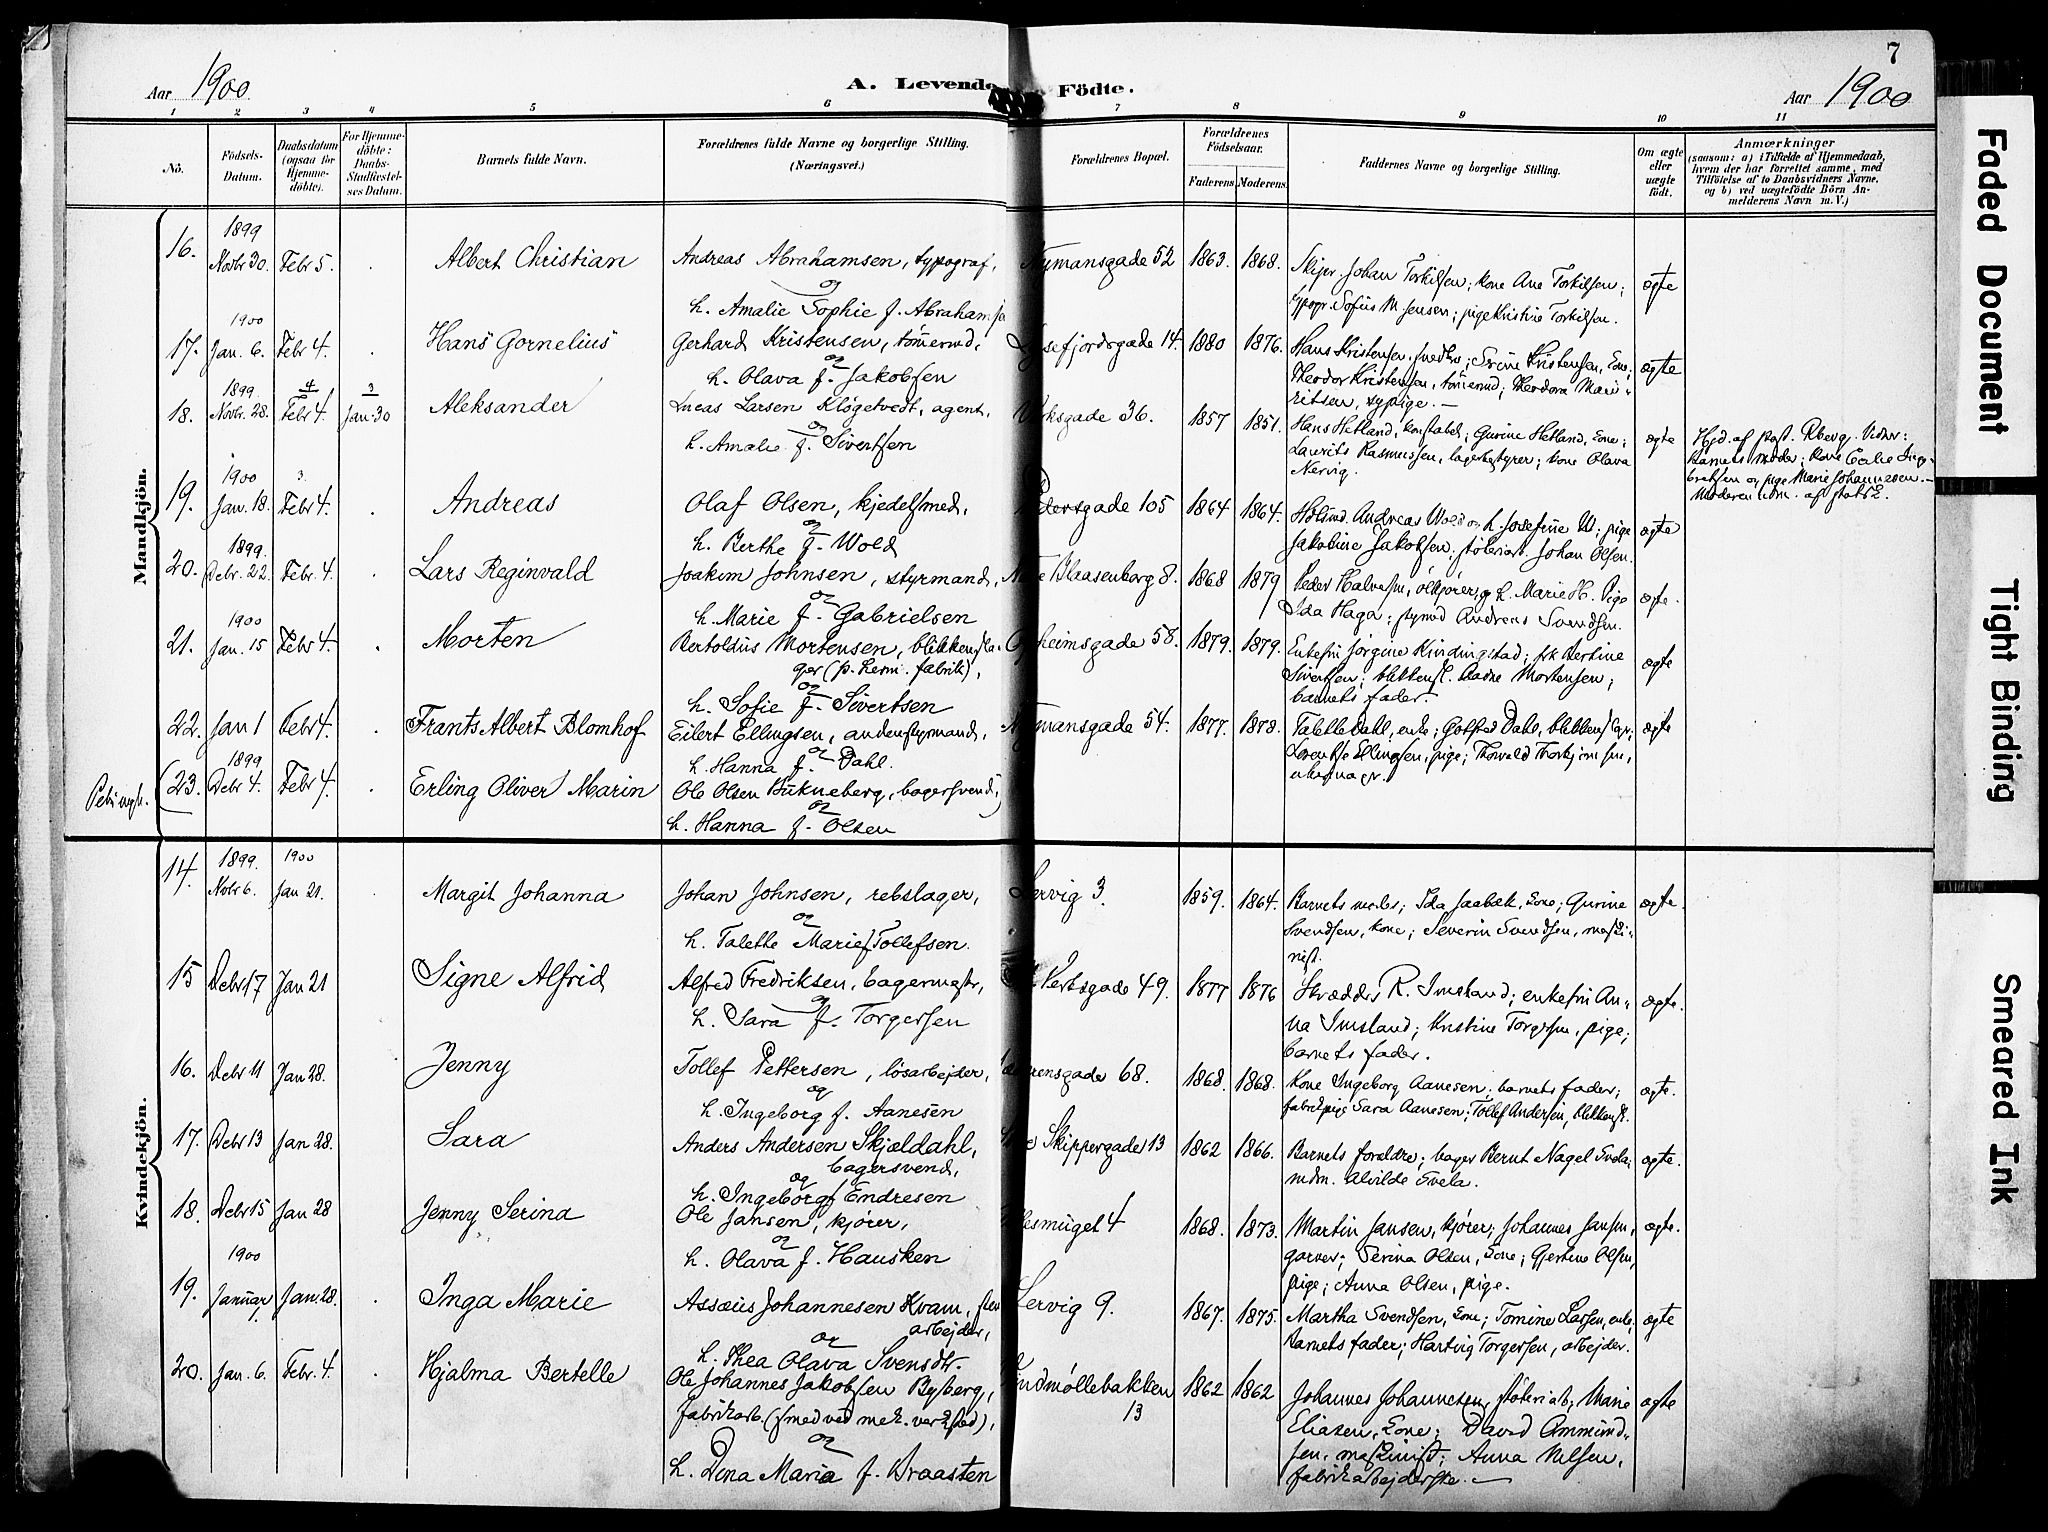 7
Aar 1900
A. Levende Födte.
Aar 1900
1 2 3 4 5 6 7 8 9 10 11
No.
Födsels-Datum.
Daabsdatum (ogsaa for Hjemme-döbte).
For Hjemme-döbte: Daabs-Stadfæstel-ses Datum.
Barnets fulde Navn.
Forældrenes fulde Navne og borgerlige Stilling. (Næringsvei.)
Forældrenes Bopæl.
Forældrenes Födselsaar.
Faderens Moderens
Faddernes Navne og borgerlige Stilling.
Om ægte eller uægte födt.
Anmærkninger
(saasom: a) i Tilfælde af Hjemmedaab,
hvem der har forrettet samme, med
Tilföielse af to Daabsvidners Navne,
og b) ved uægtefödte Börn An-
melderens Navn m. V.)
Mandkjön.
16. 1899 Novbr 30. Febr 5. Albert Christian
Andreas Abrahamsen, typograf,
og
h. Amalie Sophie f. Abrahamsen
Nymansgade 52 1863. 1868.
Skipr. Johan Torkilsen; kone Ane Torkilsen;
typogr. Sofus M. Jensen; pige Kristine Torkilsen.
ægte
17. 1900 Jan. 6. Febr 4. Hans Gornelius
Gerhard Kristensen, tömermd,
og
h. Olava f. Jakobsen
Lysefjordsgade 14. 1880 1876.
Hans Kristensen, snedker; Serine Kristensen, kone;
Theodor Kristensen, tömermd; Theodora Mau-
ritsen, sypige.
ægte
18. 1899. Novbr. 28. 4 Febr 4. 3 Jan. 30 Aleksander
Lucas Larsen Kløgetvedt, agent,
og
h. Amalie f. Sivertsen
Verksgade 36. 1857 1851.
Hans Hetland, konstabel; Gurine Hetland, kone;
Laurits Rasmussen, lagerbestyrer; kone Olava
Nervig.
ægte
Hjd. af past. Rberg. Vidner:
barnets moder; kone Cecilie Inge-
bretsen og pige Marie Johannesen.
Moderen udm. af statsk.
19. 1900 Jan. 18. 3. Febr 4. Andreas
Olaf Olsen, kjedelsmed,
og
h. Berthe f. Wold
Pedersgade 105 1864 1864.
Andreas Wold og h. Josefine W; pige
Jakobine Jakobsen; støberiarb. Johan Olsen.
ægte
20. 1899. Debr. 22. Febr. 4. Lars Reginvald
Joakim Johnsen, styrmand,
og
h. Marie f. Gabrielsen
Blaasenborg 8. 1868 1879
Peder Halvorsen, ølkjører, og h. Marie H. Pige
Ida Haga; styrmd Andreas Svendsen.
ægte.
21. 1900 Jan. 15 Febr 4. Morten
Bertoldus Mortensen, blikkensla-
ger (p. herm. fabrik),
og
h. Sofie f. Sivertsen
Opheimsgade 58. 1879. 1879.
Enkefru Jørgine Kindingstad; frk Bertine
Sivertsen; blikkensl. Aadne Mortensen;
barnets fader.
ægte
22. Jan 1 Febr 4. Frants Albert Blomhof
Eilert Ellingsen, andenstyrmand,
og
h. Hanna f. Dahl.
Nymansgade 54. 1877. 1878.
Talette Dahl, enke; Gotfred Dahl, blikkenslager;
Lorentse Ellingsen, pige; Thorvald Thorbjørnsen,
uhrmagr.
ægte
Petri mgh. (23. 1899 Debr 4. Febr 4. Erling Oliver Marin
Ole Olsen Bukneberg, bagersvend,)
og
h. Hanna f. Olsen
Kvindekjön.
14. 1899. Novbr 6. 1900 Jan 21. Margit Johanna
Johan Johnsen, rebslager,
og
h. Talette Marie f Tollefsen.
Lervig 3. 1859. 1864.
Barnets moder; Ida Jaabæk, kone; Gurine
Svendsen, kone; Severin Svendsen, maski-
nist.
ægte.
15 Debr 17 Jan 21 Signe Alfrid
Alfred Fredriksen, bagermestr,
og
h. Sara f. Torgersen
Pedersgade 49. 1877 1876
Skrædder R. Imsland; enkefru An-
na Imsland; Kristine Torgersen, pige;
barnets fader.
ægte.
16. Debr 11 Jan 28. Jenny
Tollef Pettersen, løsarbejder,
og
h. Ingeborg f. Aanesen
68. 1868. 1868.
Kone Ingeborg Aanesen; barnets fader;
fabrikpige Sara Aanesen; Tollef Andersen, blikkensl.
ægte.
17. Debr 13 Jan 28. Sara
Anders Andersen Skjældahl,
bagersvend,
og
h. Ingeborg f Endresen
Skippergade 13 1862 1866.
Barnets forældre; bager Bernt Nagel Svela;
mdm. Alvilde Svela.
ægte.
18. Debr 15 Jan 28 Jenny Serina
Ole Jansen, kjører,
og
h. Olava f. Hausken
4 1868. 1873.
Martin Jansen, kjører; Johannes Jansen,
garver; Serina Olsen, kone; Gjertine Olsen,
pige; Anna Olsen, pige.
ægte.
19. 1900 Januar 1 Jan. 28. Inga Marie
Assæus Johannesen Kvam, sten
arbejder,
og
h. Thea Olava Svensdtr.
Lervig 9. 1867. 1875.
Martha Svendsen, kone; Tomine Larsen, enke;
barnets fader; Hartvig Torgersen, arbejder.
ægte
20. Jan. 6. Febr. 4. Hjalma Bertelle
Ole Johannes Jakobsen Byberg,
fabrikarb. (smed ved mek. verksted),
og
h. Dena Maria f. Braasten
Vindmøllebakken
13
1862 1862
Johannes Johannesen, støberiarb; Marie
Eliasen, kone; David Ommund-
sen, maskinist; Anna Nilsen,
fabrikarbejderske.
ægte
Faded Document
Tight Binding
Smeared Ink